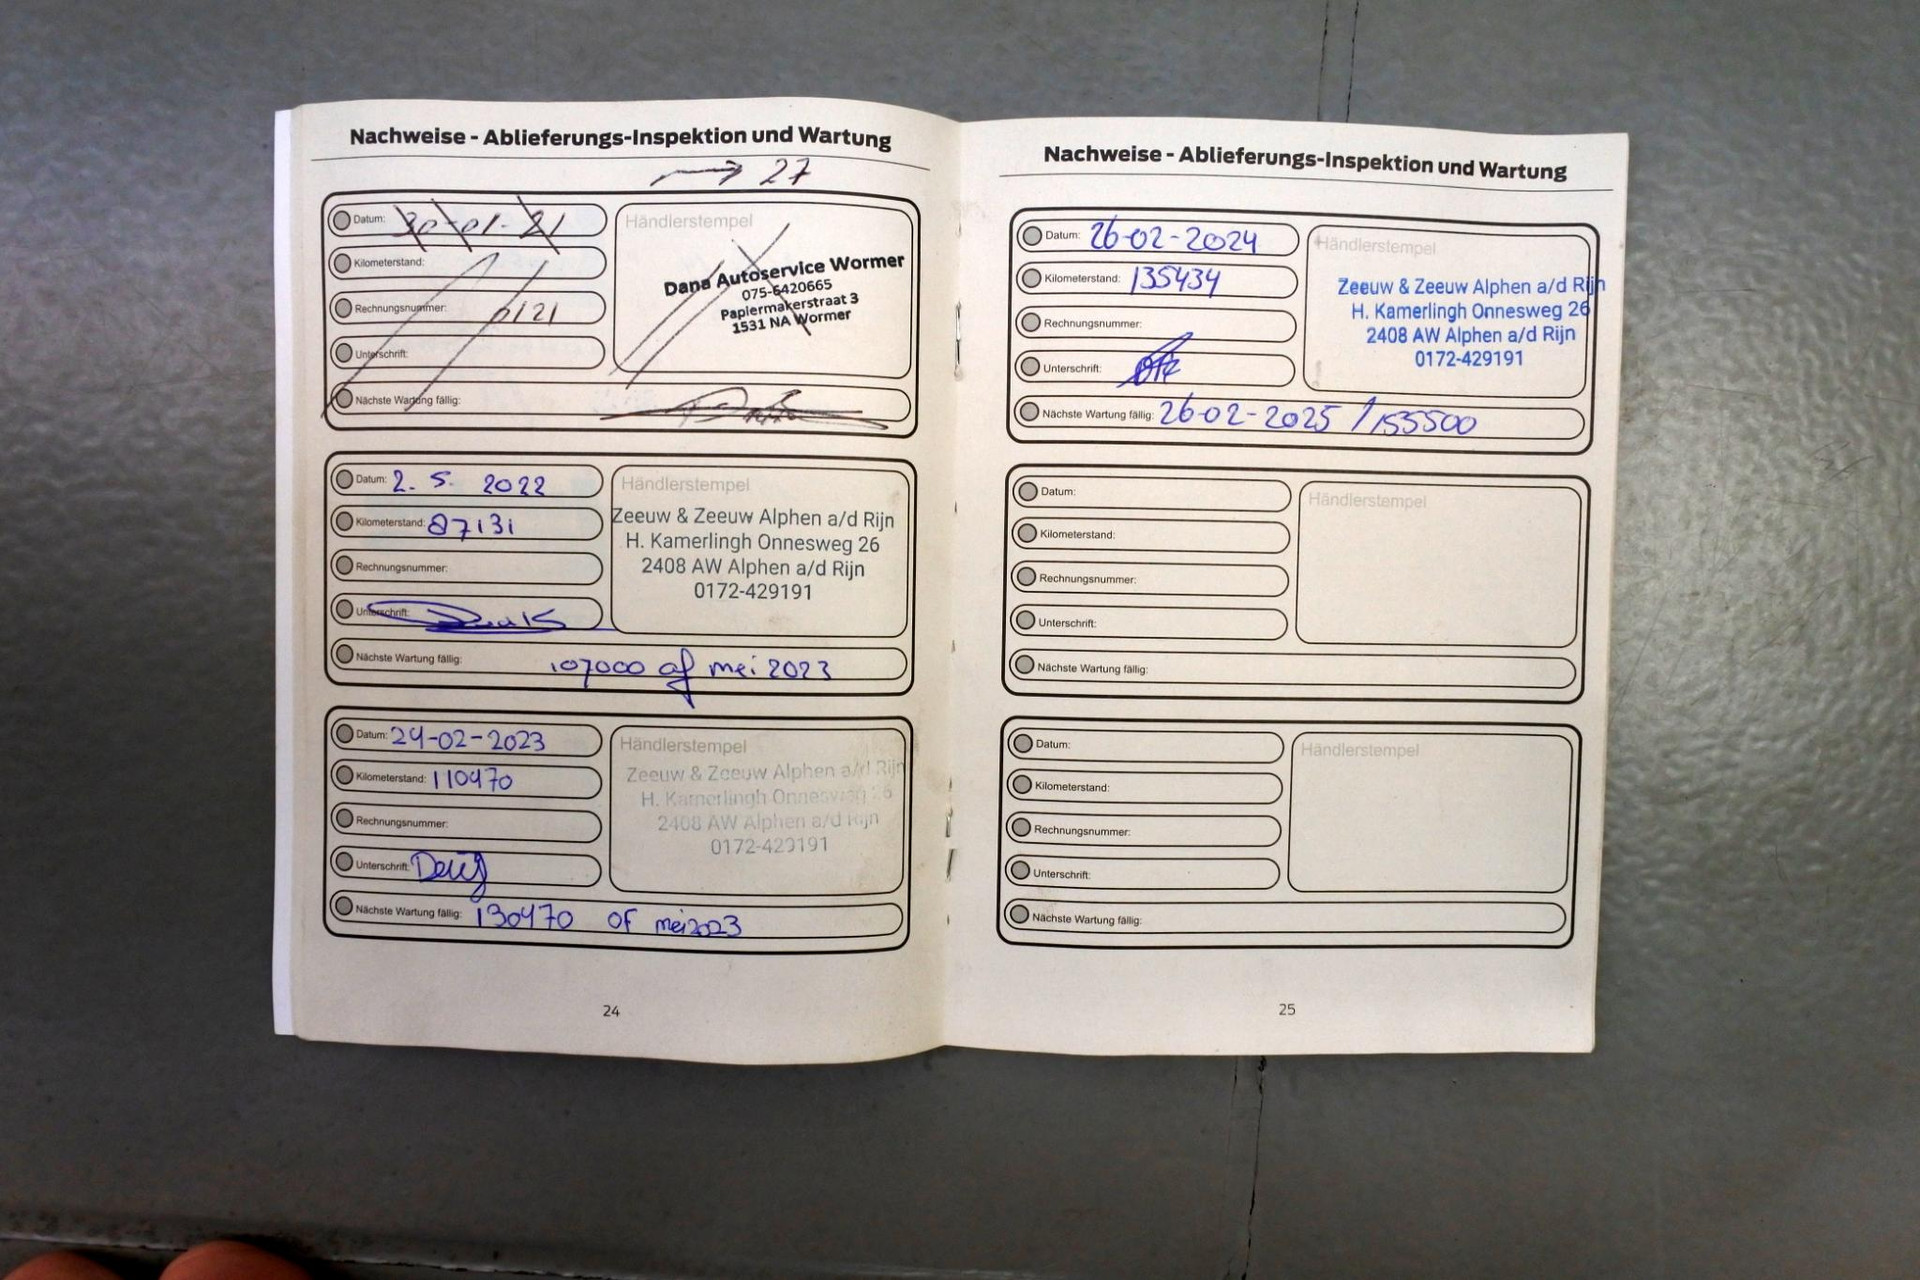 Nachweise - Ablieferungs-Inspektion und Wartung
→ 27
Datum: 30-01-21
Kilometerstand:
Rechnungsnummer: 0121
Unterschrift:
Nächste Wartung fällig:
Händlerstempel
Dana Autoservice Wormer
075-6420665
Papiermakerstraat 3
1531 NA Wormer
Datum: 2. 5. 2022
Kilometerstand: 87131
Rechnungsnummer:
Unterschrift:
Nächste Wartung fällig: 107000 of mei 2023
Händlerstempel
Zeeuw & Zeeuw Alphen a/d Rijn
H. Kamerlingh Onnesweg 26
2408 AW Alphen a/d Rijn
0172-429191
Datum: 24-02-2023
Kilometerstand: 110470
Rechnungsnummer:
Unterschrift:
Nächste Wartung fällig: 130470 of mei 2023
Händlerstempel
Zeeuw & Zeeuw Alphen a/d Rijn
H. Kamerlingh Onnesweg 26
2408 AW Alphen a/d Rijn
0172-429191
24
Nachweise - Ablieferungs-Inspektion und Wartung
Datum: 26-02-2024
Kilometerstand: 135434
Rechnungsnummer:
Unterschrift:
Nächste Wartung fällig: 26-02-2025 / 155500
Händlerstempel
Zeeuw & Zeeuw Alphen a/d Rijn
H. Kamerlingh Onnesweg 26
2408 AW Alphen a/d Rijn
0172-429191
Datum:
Kilometerstand:
Rechnungsnummer:
Unterschrift:
Nächste Wartung fällig:
Händlerstempel
Datum:
Kilometerstand:
Rechnungsnummer:
Unterschrift:
Nächste Wartung fällig:
Händlerstempel
25